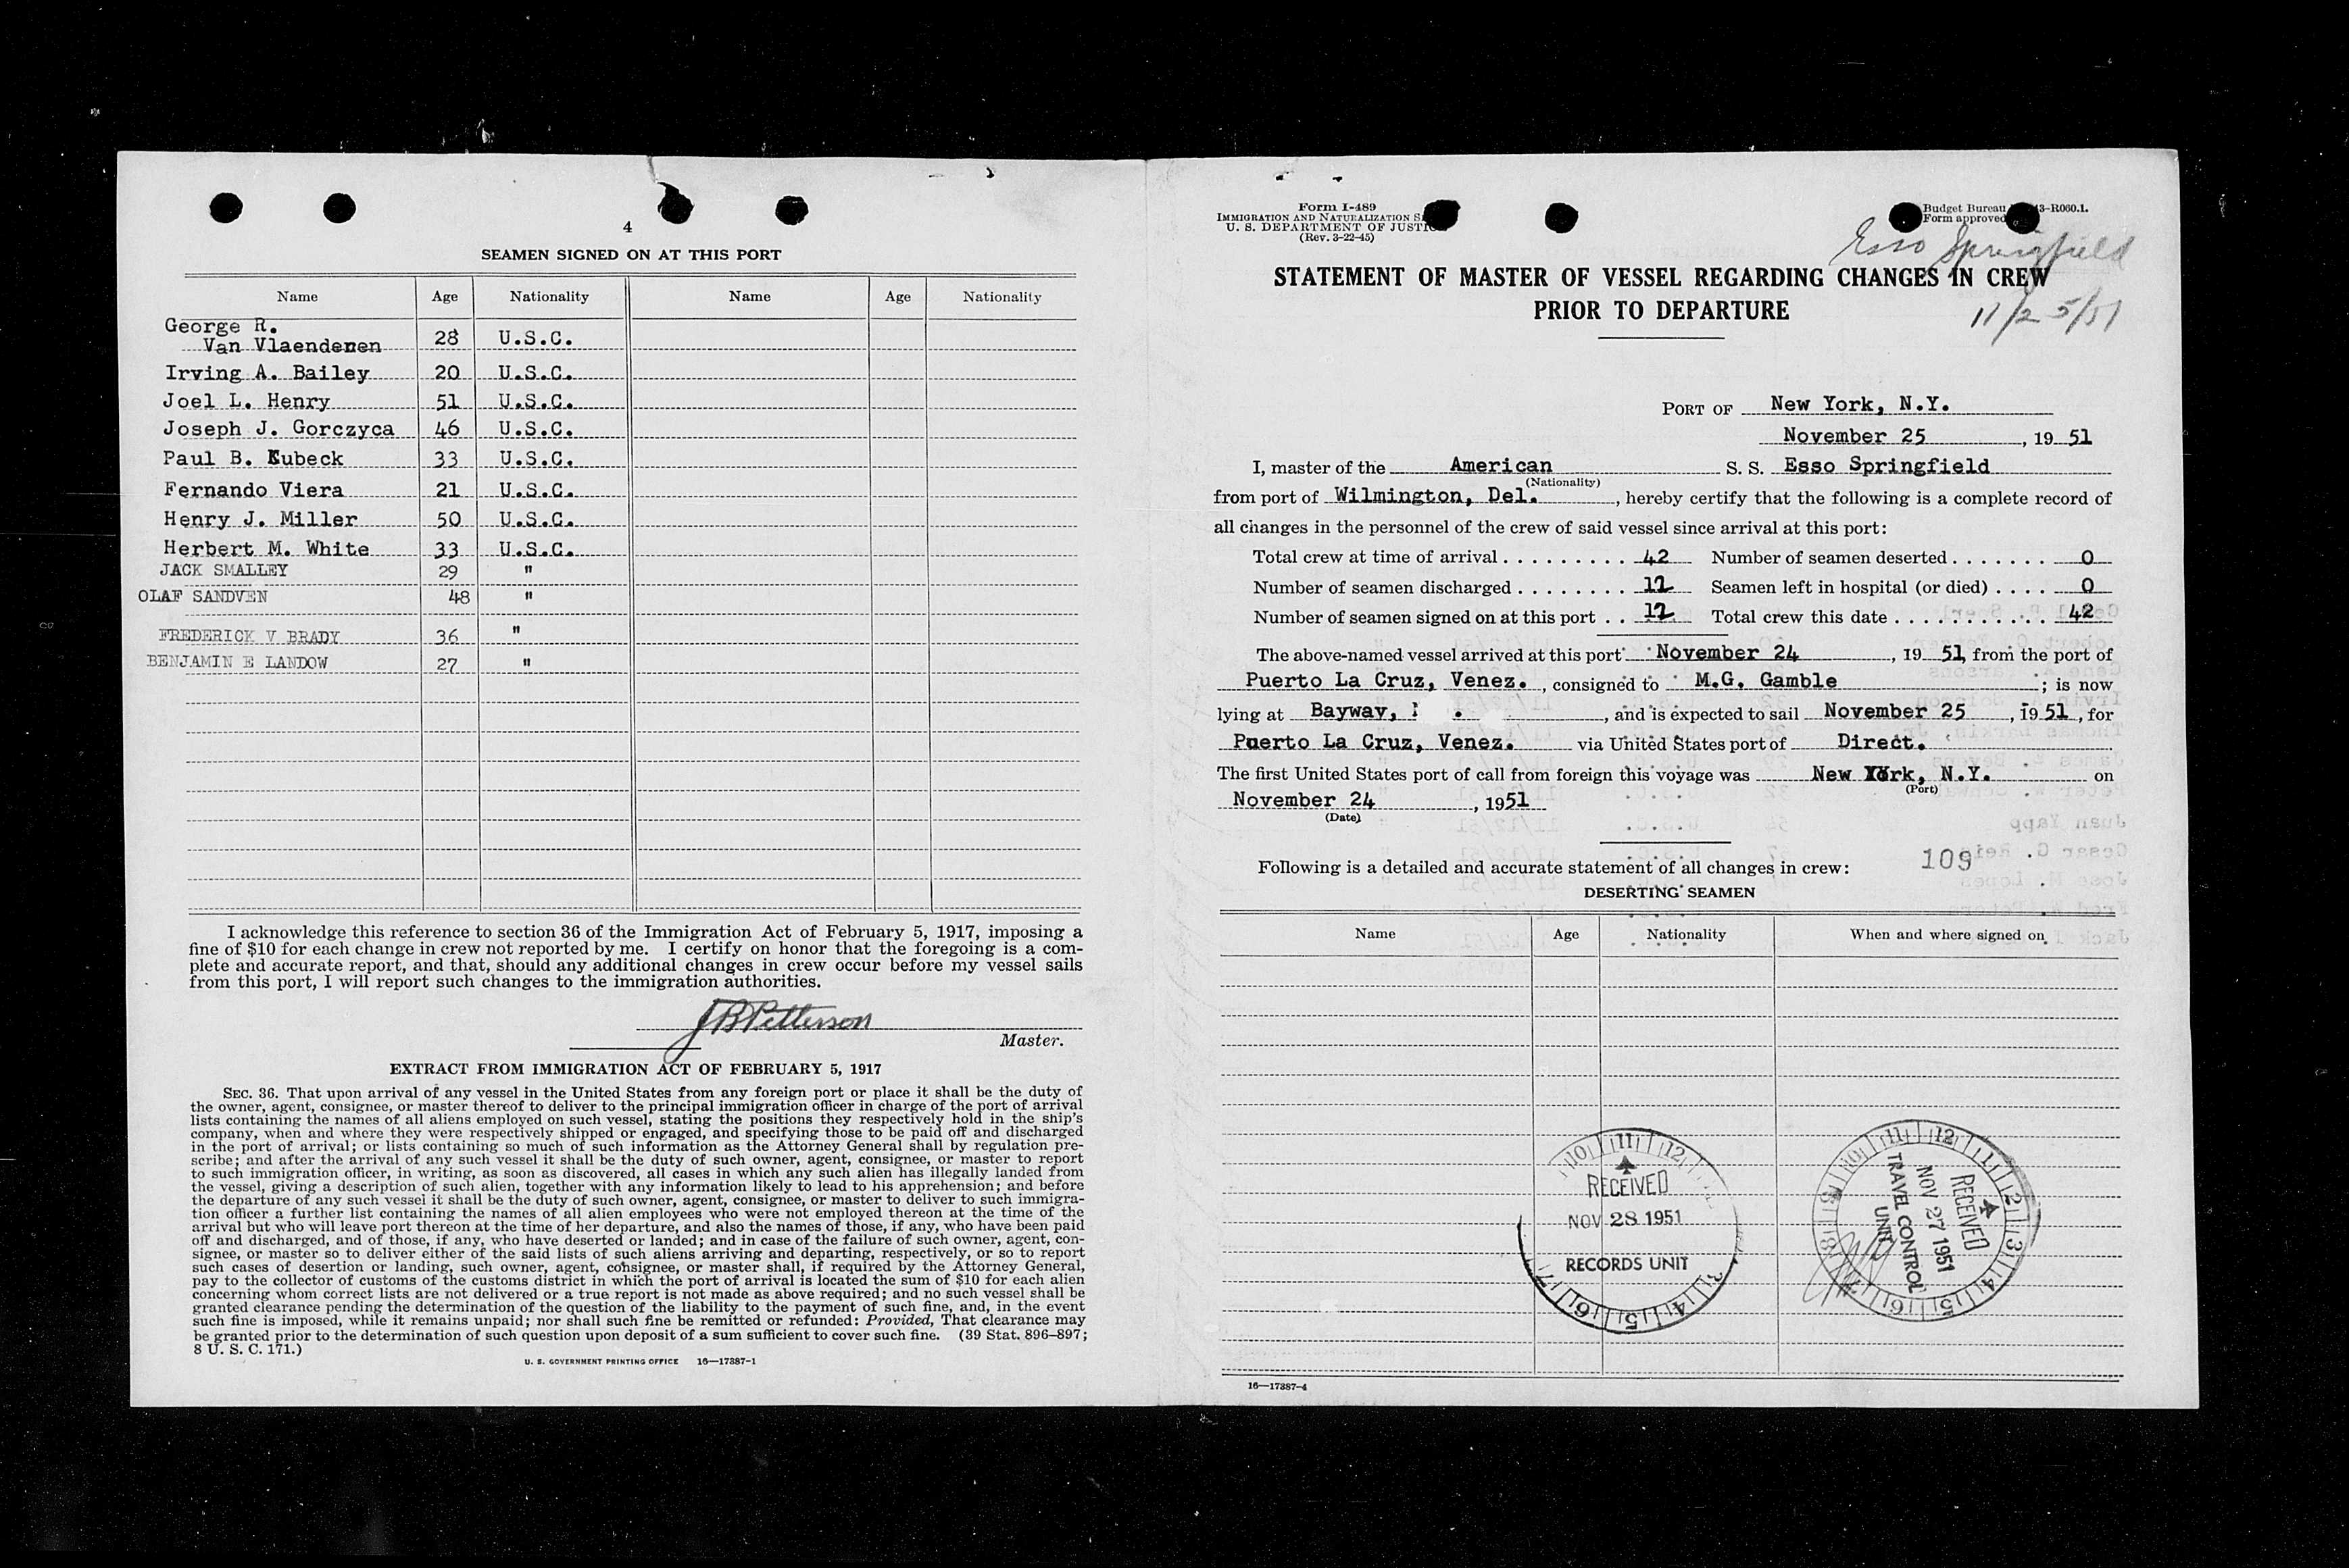 4
SEAMEN SIGNED ON AT THIS PORT
Name Age Nationality Name Age Nationality
George R.
Van Vlaendenen 28 U.S.C.
Irving A. Bailey 20 U.S.C.
Joel L. Henry 51 U.S.C.
Joseph J. Gorczyca 46 U.S.C.
Paul B. Kubeck 33 U.S.C.
Fernando Viera 21 U.S.C.
Henry J. Miller 50 U.S.C.
Herbert M. White 33 U.S.C.
JACK SMALLEY 29 "
OLAF SANDVEN 48 "
FREDERICK V BRADY 36 "
BENJAMIN E LANDOW 27 "
I acknowledge this reference to section 36 of the Immigration Act of February 5, 1917, imposing a
fine of $10 for each change in crew not reported by me. I certify on honor that the foregoing is a com-
plete and accurate report, and that, should any additional changes in crew occur before my vessel sails
from this port, I will report such changes to the immigration authorities.
J B Petterson
Master.
EXTRACT FROM IMMIGRATION ACT OF FEBRUARY 5, 1917
SEC. 36. That upon arrival of any vessel in the United States from any foreign port or place it shall be the duty of
the owner, agent, consignee, or master thereof to deliver to the principal immigration officer in charge of the port of arrival
lists containing the names of all aliens employed on such vessel, stating the positions they respectively hold in the ship's
company, when and where they were respectively shipped or engaged, and specifying those to be paid off and discharged
in the port of arrival; or lists containing so much of such information as the Attorney General shall by regulation pre-
scribe; and after the arrival of any such vessel it shall be the duty of such owner, agent, consignee, or master to report
to such immigration officer, in writing, as soon as discovered, all cases in which any such alien has illegally landed from
the vessel, giving a description of such alien, together with any information likely to lead to his apprehension; and before
the departure of any such vessel it shall be the duty of such owner, agent, consignee, or master to deliver to such immigra-
tion officer a further list containing the names of all alien employees who were not employed thereon at the time of the
arrival but who will leave port thereon at the time of her departure, and also the names of those, if any, who have been paid
off and discharged, and of those, if any, who have deserted or landed; and in case of the failure of such owner, agent, con-
signee, or master so to deliver either of the said lists of such aliens arriving and departing, respectively, or so to report
such cases of desertion or landing, such owner, agent, consignee, or master shall, if required by the Attorney General,
pay to the collector of customs of the customs district in which the port of arrival is located the sum of $10 for each alien
concerning whom correct lists are not delivered or a true report is not made as above required; and no such vessel shall be
granted clearance pending the determination of the question of the liability to the payment of such fine, and, in the event
such fine is imposed, while it remains unpaid; nor shall such fine be remitted or refunded: Provided, That clearance may
be granted prior to the determination of such question upon deposit of a sum sufficient to cover such fine. (39 Stat. 896–897;
8 U. S. C. 171.)
U. S. GOVERNMENT PRINTING OFFICE 16—17387-1
Form I-489
IMMIGRATION AND NATURALIZATION
U. S. DEPARTMENT OF
(Rev. 3-22-45)
Budget Bureau 43-R060.1.
Form approved
Esso Springfield
11/25/51
STATEMENT OF MASTER OF VESSEL REGARDING CHANGES IN CREW
PRIOR TO DEPARTURE
PORT OF New York, N.Y.
November 25, 19 51
I, master of the American S. S. Esso Springfield
(Nationality)
from port of Wilmington, Del., hereby certify that the following is a complete record of
all changes in the personnel of the crew of said vessel since arrival at this port:
Total crew at time of arrival . . . . . . . . . 42 Number of seamen deserted . . . . . . . 0
Number of seamen discharged . . . . . . . . 12 Seamen left in hospital (or died) . . . . 0
Number of seamen signed on at this port . . 12 Total crew this date . . . . . . . . . . . 42
The above-named vessel arrived at this port November 24, 19 51, from the port of
Puerto La Cruz, Venez., consigned to M.G. Gamble; is now
lying at Bayway, , and is expected to sail November 25, 19 51, for
Puerto La Cruz, Venez. via United States port of Direct.
The first United States port of call from foreign this voyage was New York, N.Y. on
(Port)
November 24, 1951
(Date)
Following is a detailed and accurate statement of all changes in crew: 109
DESERTING SEAMEN
Name Age Nationality When and where signed on
10 11 12
RECEIVED
NOV 28 1951
RECORDS UNIT
7 6 5 4 3
10 11 12 1 2 3 4 5 6 7 8 9
RECEIVED
NOV 27 1951
TRAVEL CONTROL
UNIT
16—17387-4